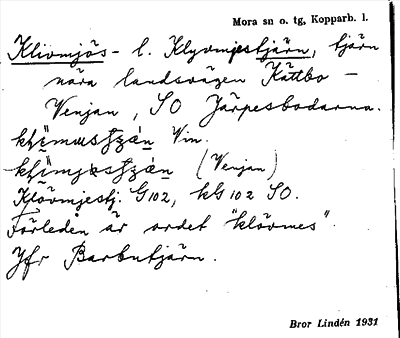 Mora sn o. tg, Kopparb. l.
Klivmjös- l. Klyvmjestjärn, tjärn
nära landsvägen Kättbo -
Venjan, SO Järpesbodarna.
Vin.
(Venjan)
Klövmjestj. G102, kG 102 SO.
Förleden är ordet "klövmes".
Jfr Barbutjärn.
Bror Lindén 1931